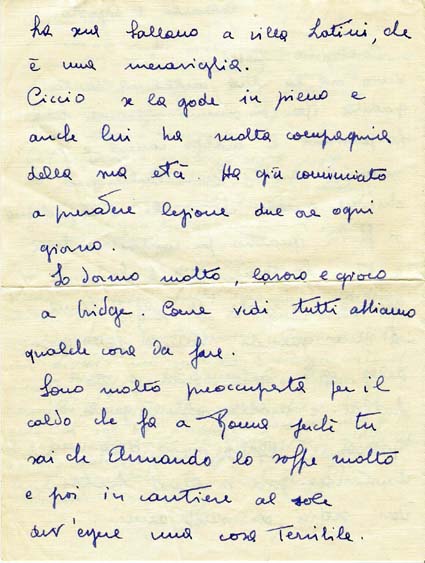 ha sua ballano a villa Latini, che
è una meraviglia.
Ciccio se la gode in pieno e
anche lui ha molta compagnia
della sua età. Ha già cominciato
a prendere lezione due ore ogni
giorno.
Io dormo molto, lavoro e gioco
a bridge. Come vedi tutti abbiamo
qualche cosa da fare.
Sono molto preoccupata per il
caldo che fa a Roma perchè tu
sai che Armando lo soffre molto
e poi in cantiere al sole
dev'essere una cosa terribile.